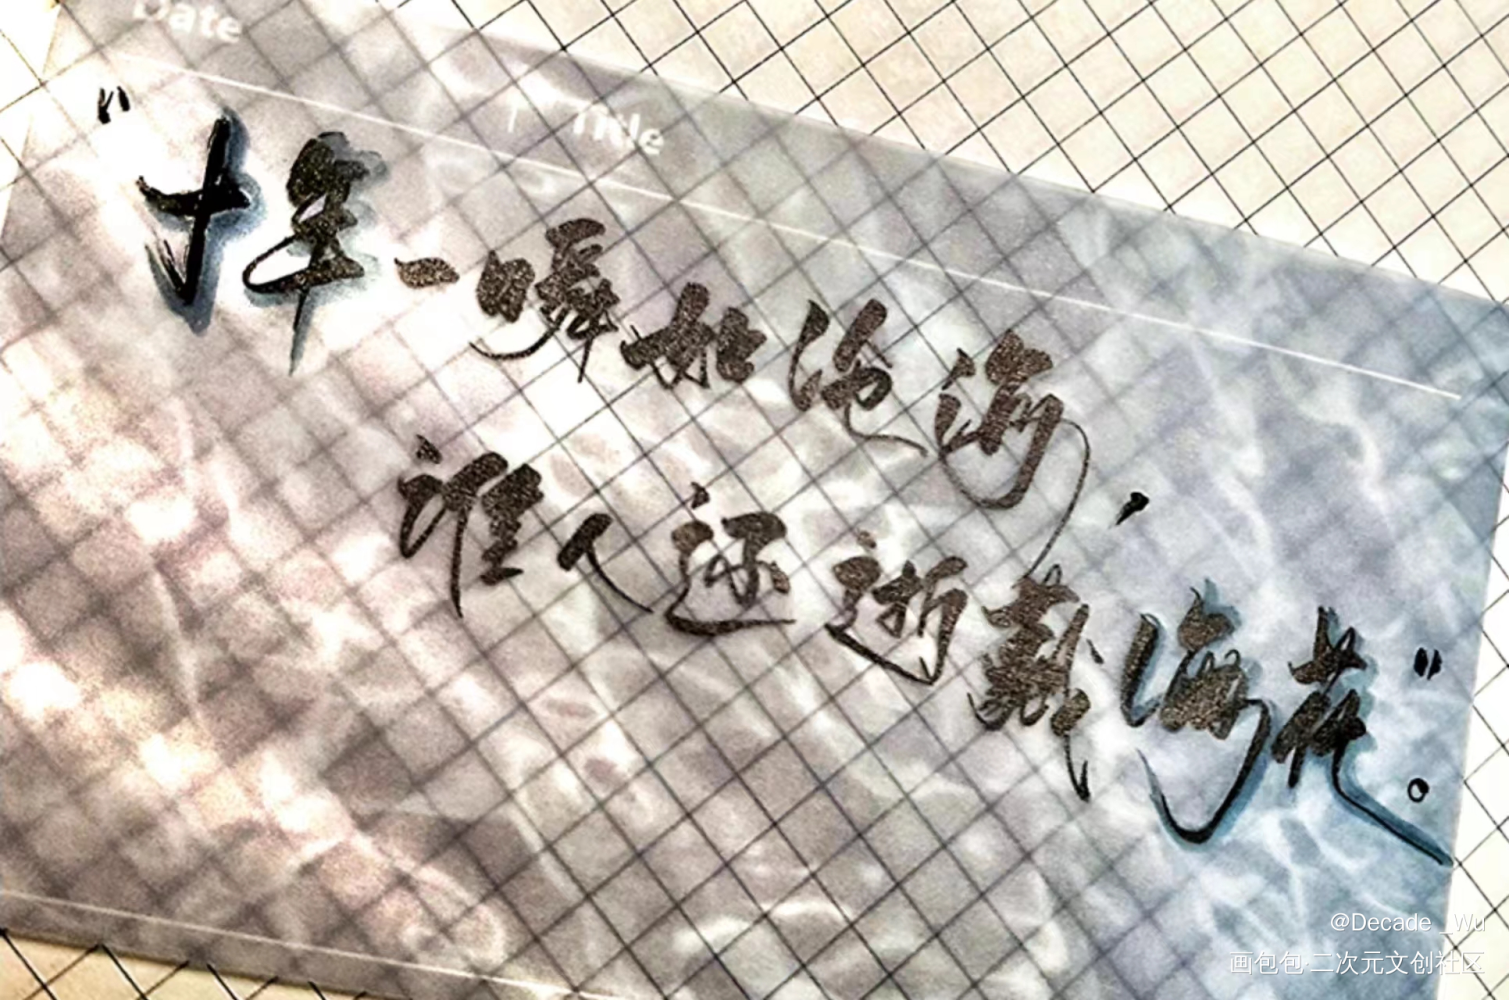 Date
Title
"十年一瞬如沧海,
谁人还逝戴海花"。
@Decade _Wu
画包包·二次元文创社区